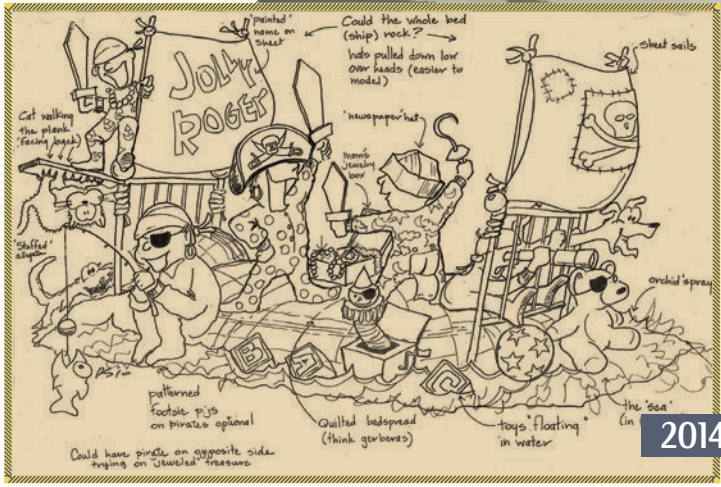 "painted"
name on
sheet
Could the whole bed
(ship) rock?
hats pulled down low
over heads (easier to
model)
sheet sails
JOLLY
ROGER
Cat walking
the plank
facing back)
"newspaper" hat
mom's
jewelry
box
"Stuffed"
alligator
orchid "spray
B
A
C
J
patterned
footsie pjs
on pirates optional
Quilted bedspread
(think gerberas)
toys "floating"
in water
the "sea"
(in
Could have pirate on opposite side
trying on "jeweled" treasure
2014